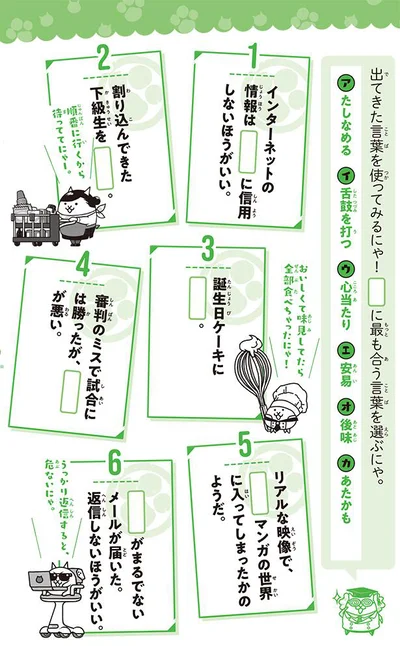 出てきた言葉を使ってみるにゃ！
□に最も合う言葉を選ぶにゃ。
ア たしなめる
イ 舌鼓を打つ
ウ 心当たり
エ 安易
オ 後味
カ あたかも
1
インターネットの
情報は□に信用
しないほうがいい。
2
割り込んできた
下級生を□。
順番に行くから
待っててにゃー。
3
誕生日ケーキに
□。
おいしくて味見してたら
全部食べちゃったにゃ！
4
審判のミスで試合に
は勝ったが、□
が悪い。
5
リアルな映像で、
□マンガの世界
に入ってしまったかの
ようだ。
6
□がまるでない
メールが届いた。
返信しないほうがいい。
うっかり返信すると、
危ないにゃ。